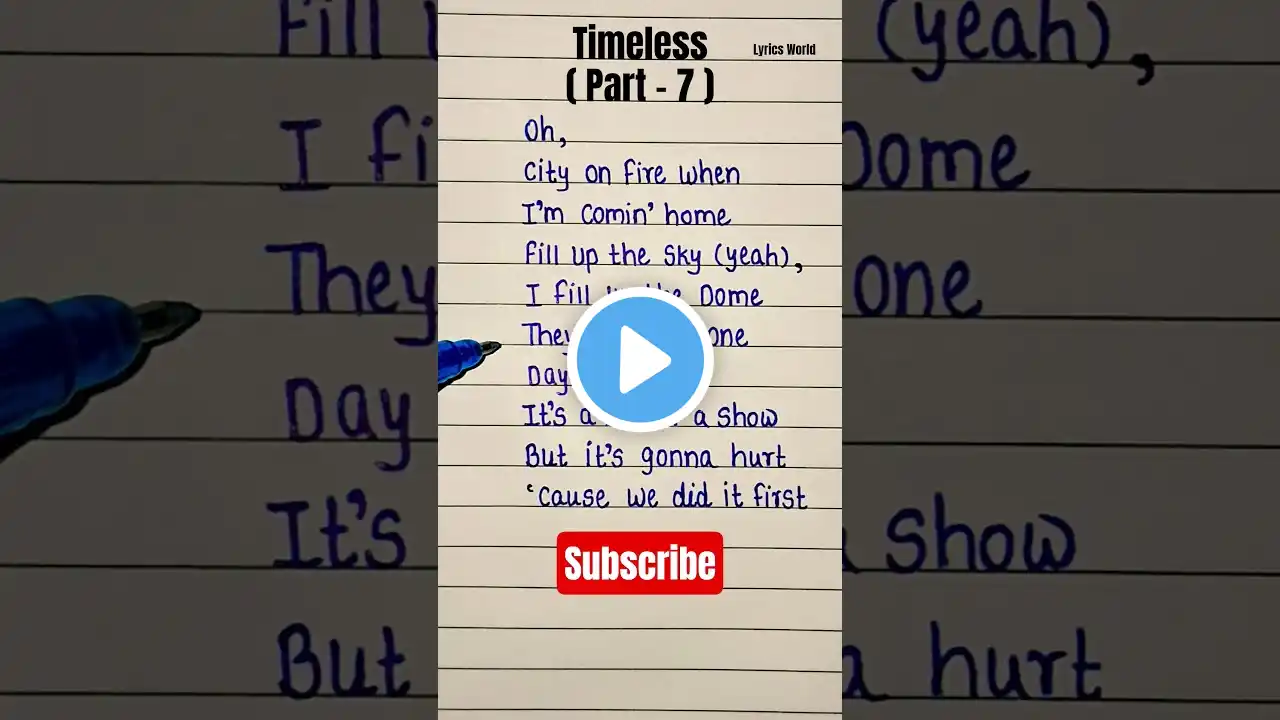 Timeless
( Part - 7 )
Lyrics World
Oh,
City on fire when
I'm comin' home
Fill up the sky (yeah),
I fill the Dome
They one
Day
It's a a show
But it's gonna hurt
'cause we did it first
Subscribe
Fill (yeah),
I Dome
They one
Day
It's show
But hurt